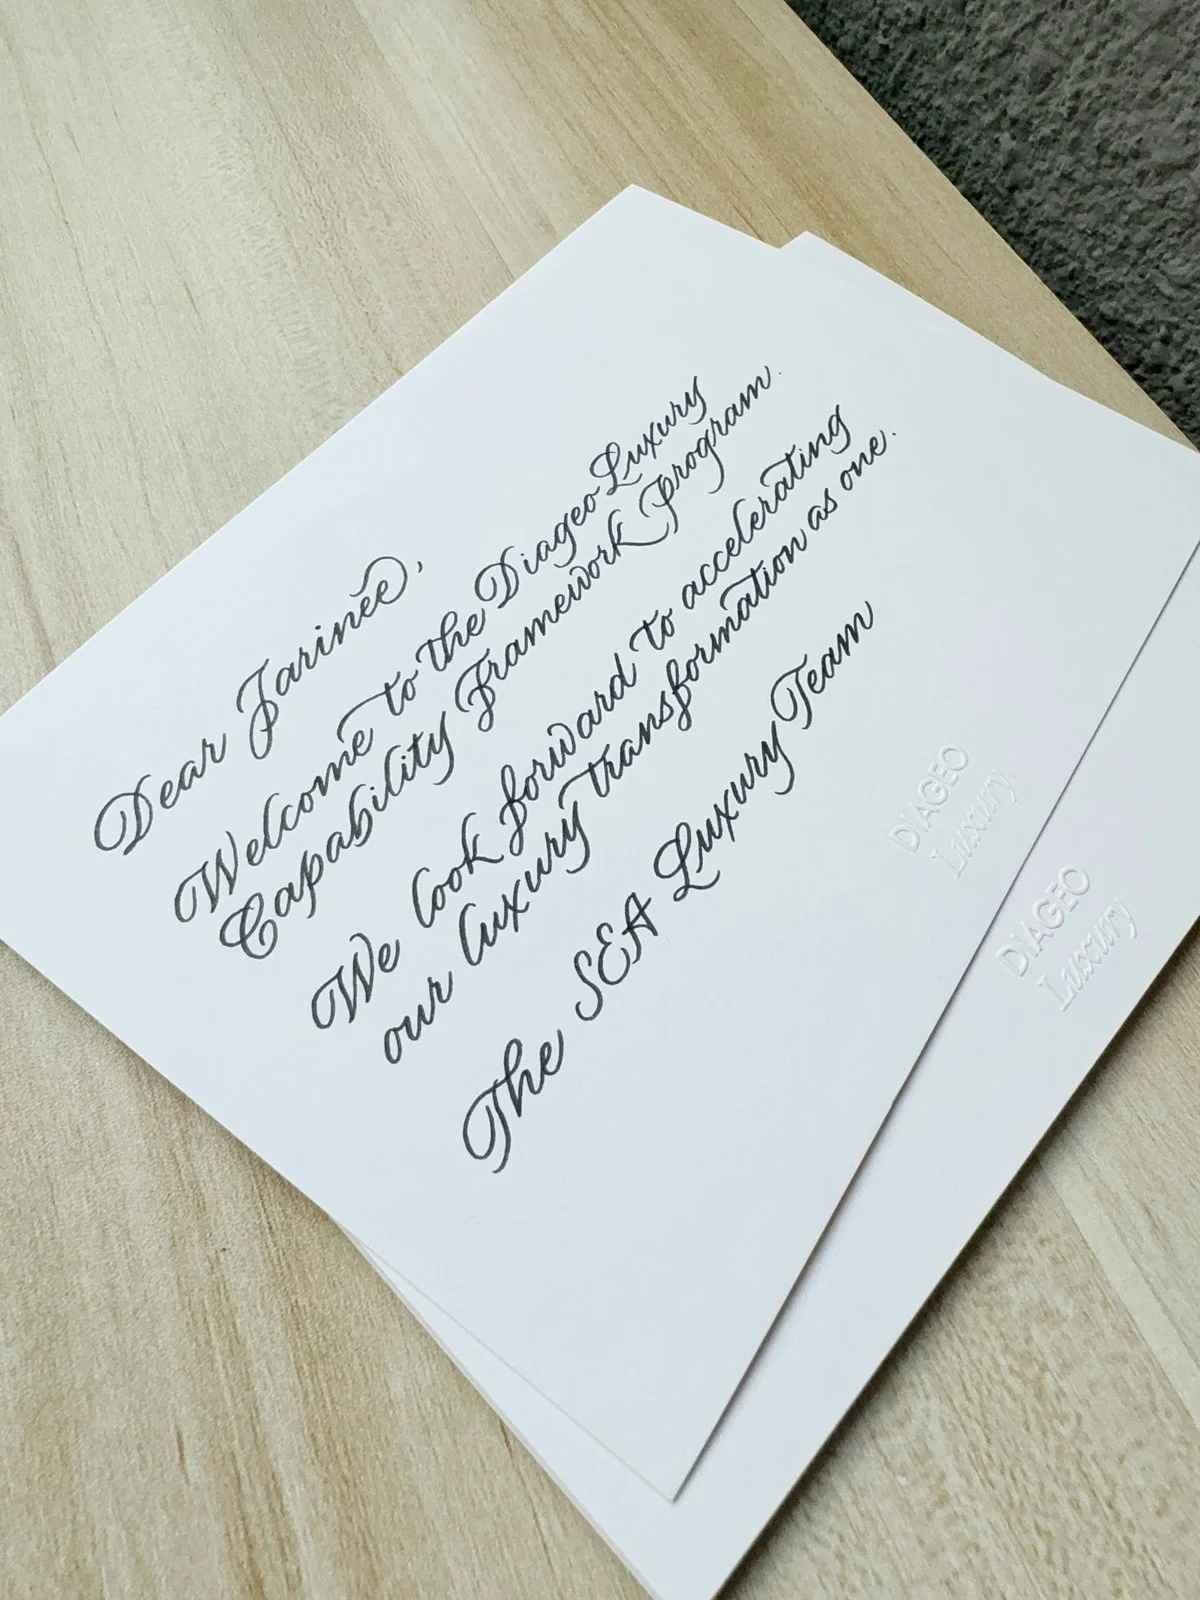 Dear Farinée,
Welcome to the Diageo Luxury
Capability Framework Program.
We look forward to accelerating
our luxury transformation as one.
The SEA Luxury Team
DIAGEO
Luxury
DIAGEO
Luxury